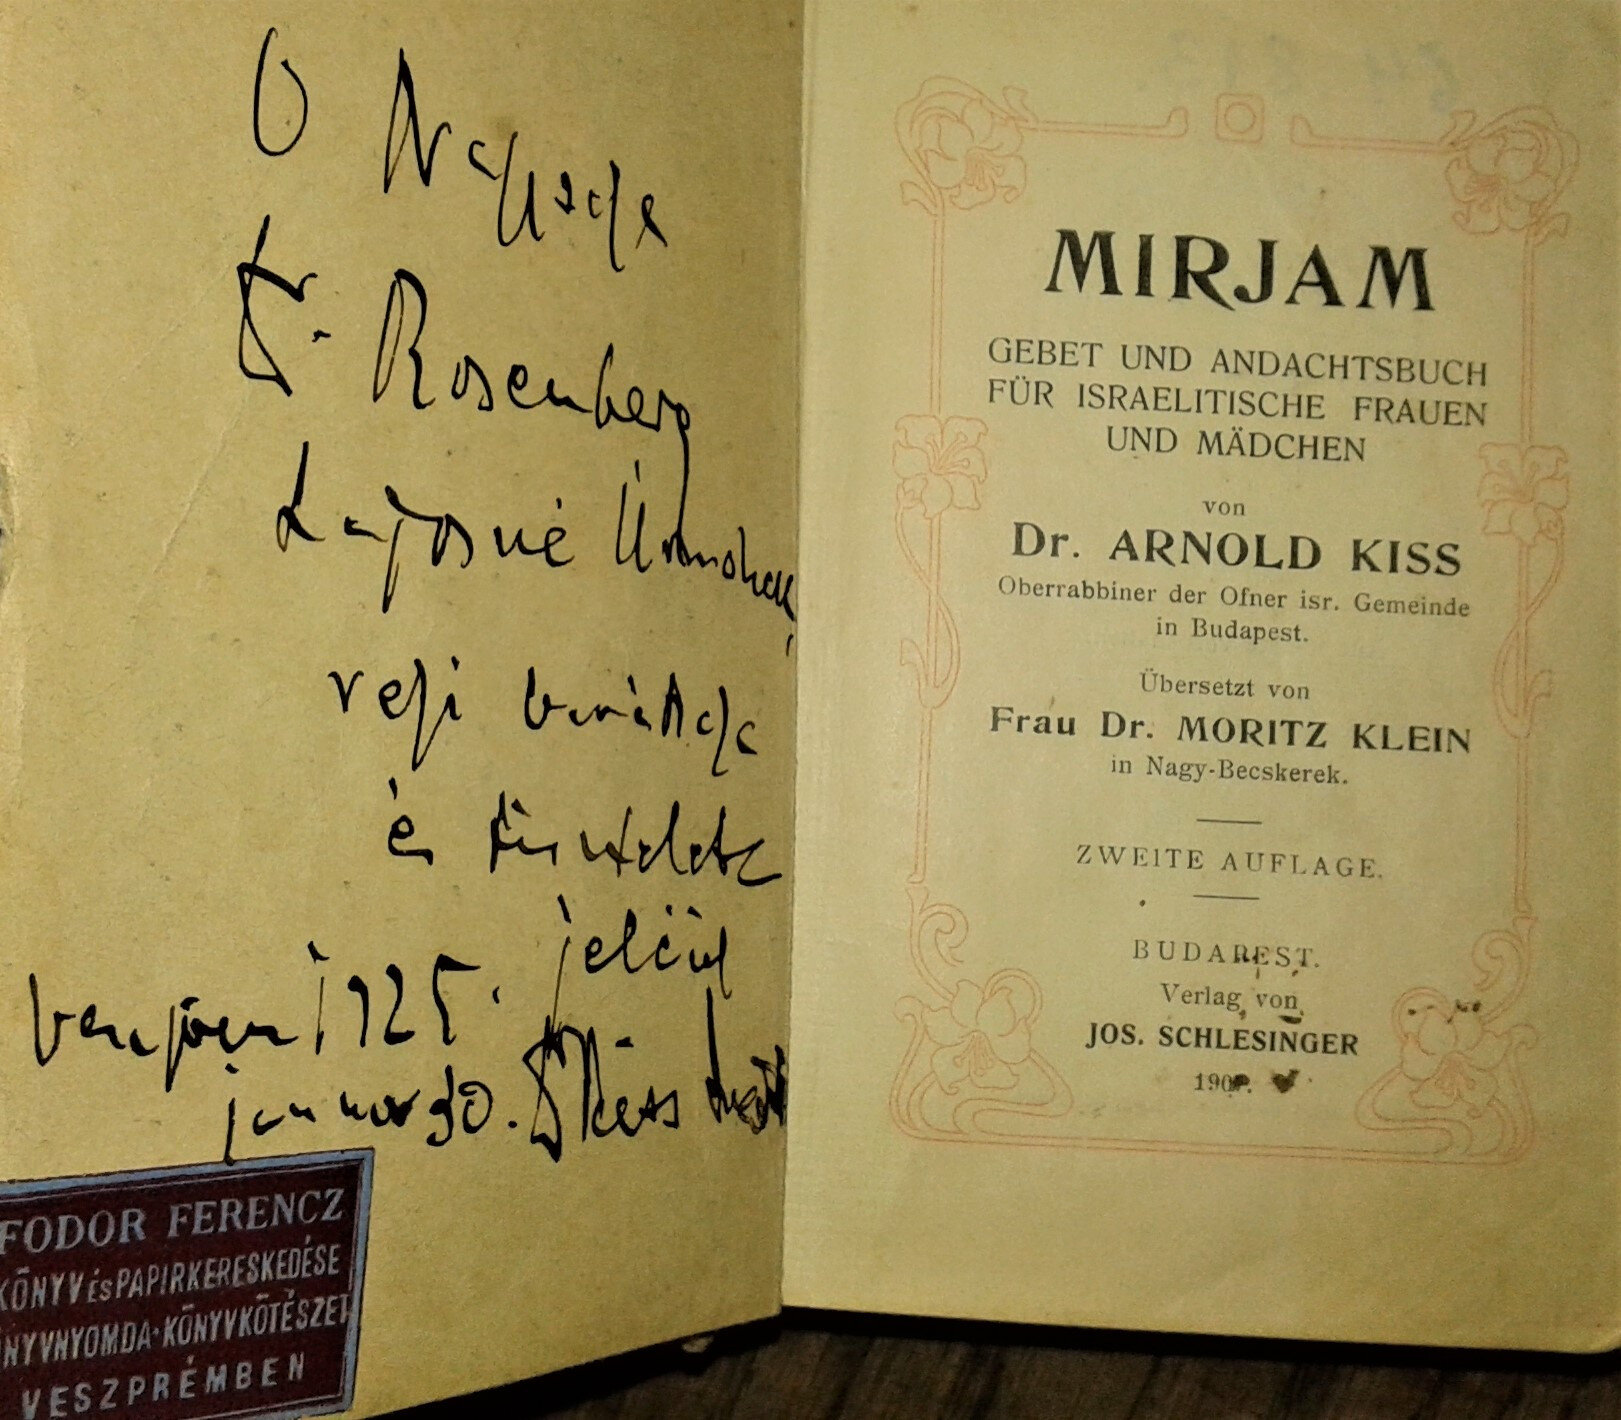 Ő Nagysága
Dr. Rosenberg
Lajosné Úrnőnek,
régi barátsága
és tisztelete
jeléül
Veszprém 1925.
január 30. Dr Kiss
FODOR FERENCZ
KÖNYV és PAPIRKERESKEDÉSE
NYVNYOMDA·KÖNYVKÖTÉSZET
VESZPRÉMBEN
MIRJAM
GEBET UND ANDACHTSBUCH
FÜR ISRAELITISCHE FRAUEN
UND MÄDCHEN
von
Dr. ARNOLD KISS
Oberrabbiner der Ofner isr. Gemeinde
in Budapest.
Übersetzt von
Frau Dr. MORITZ KLEIN
in Nagy-Becskerek.
ZWEITE AUFLAGE.
BUDAPEST.
Verlag von
JOS. SCHLESINGER